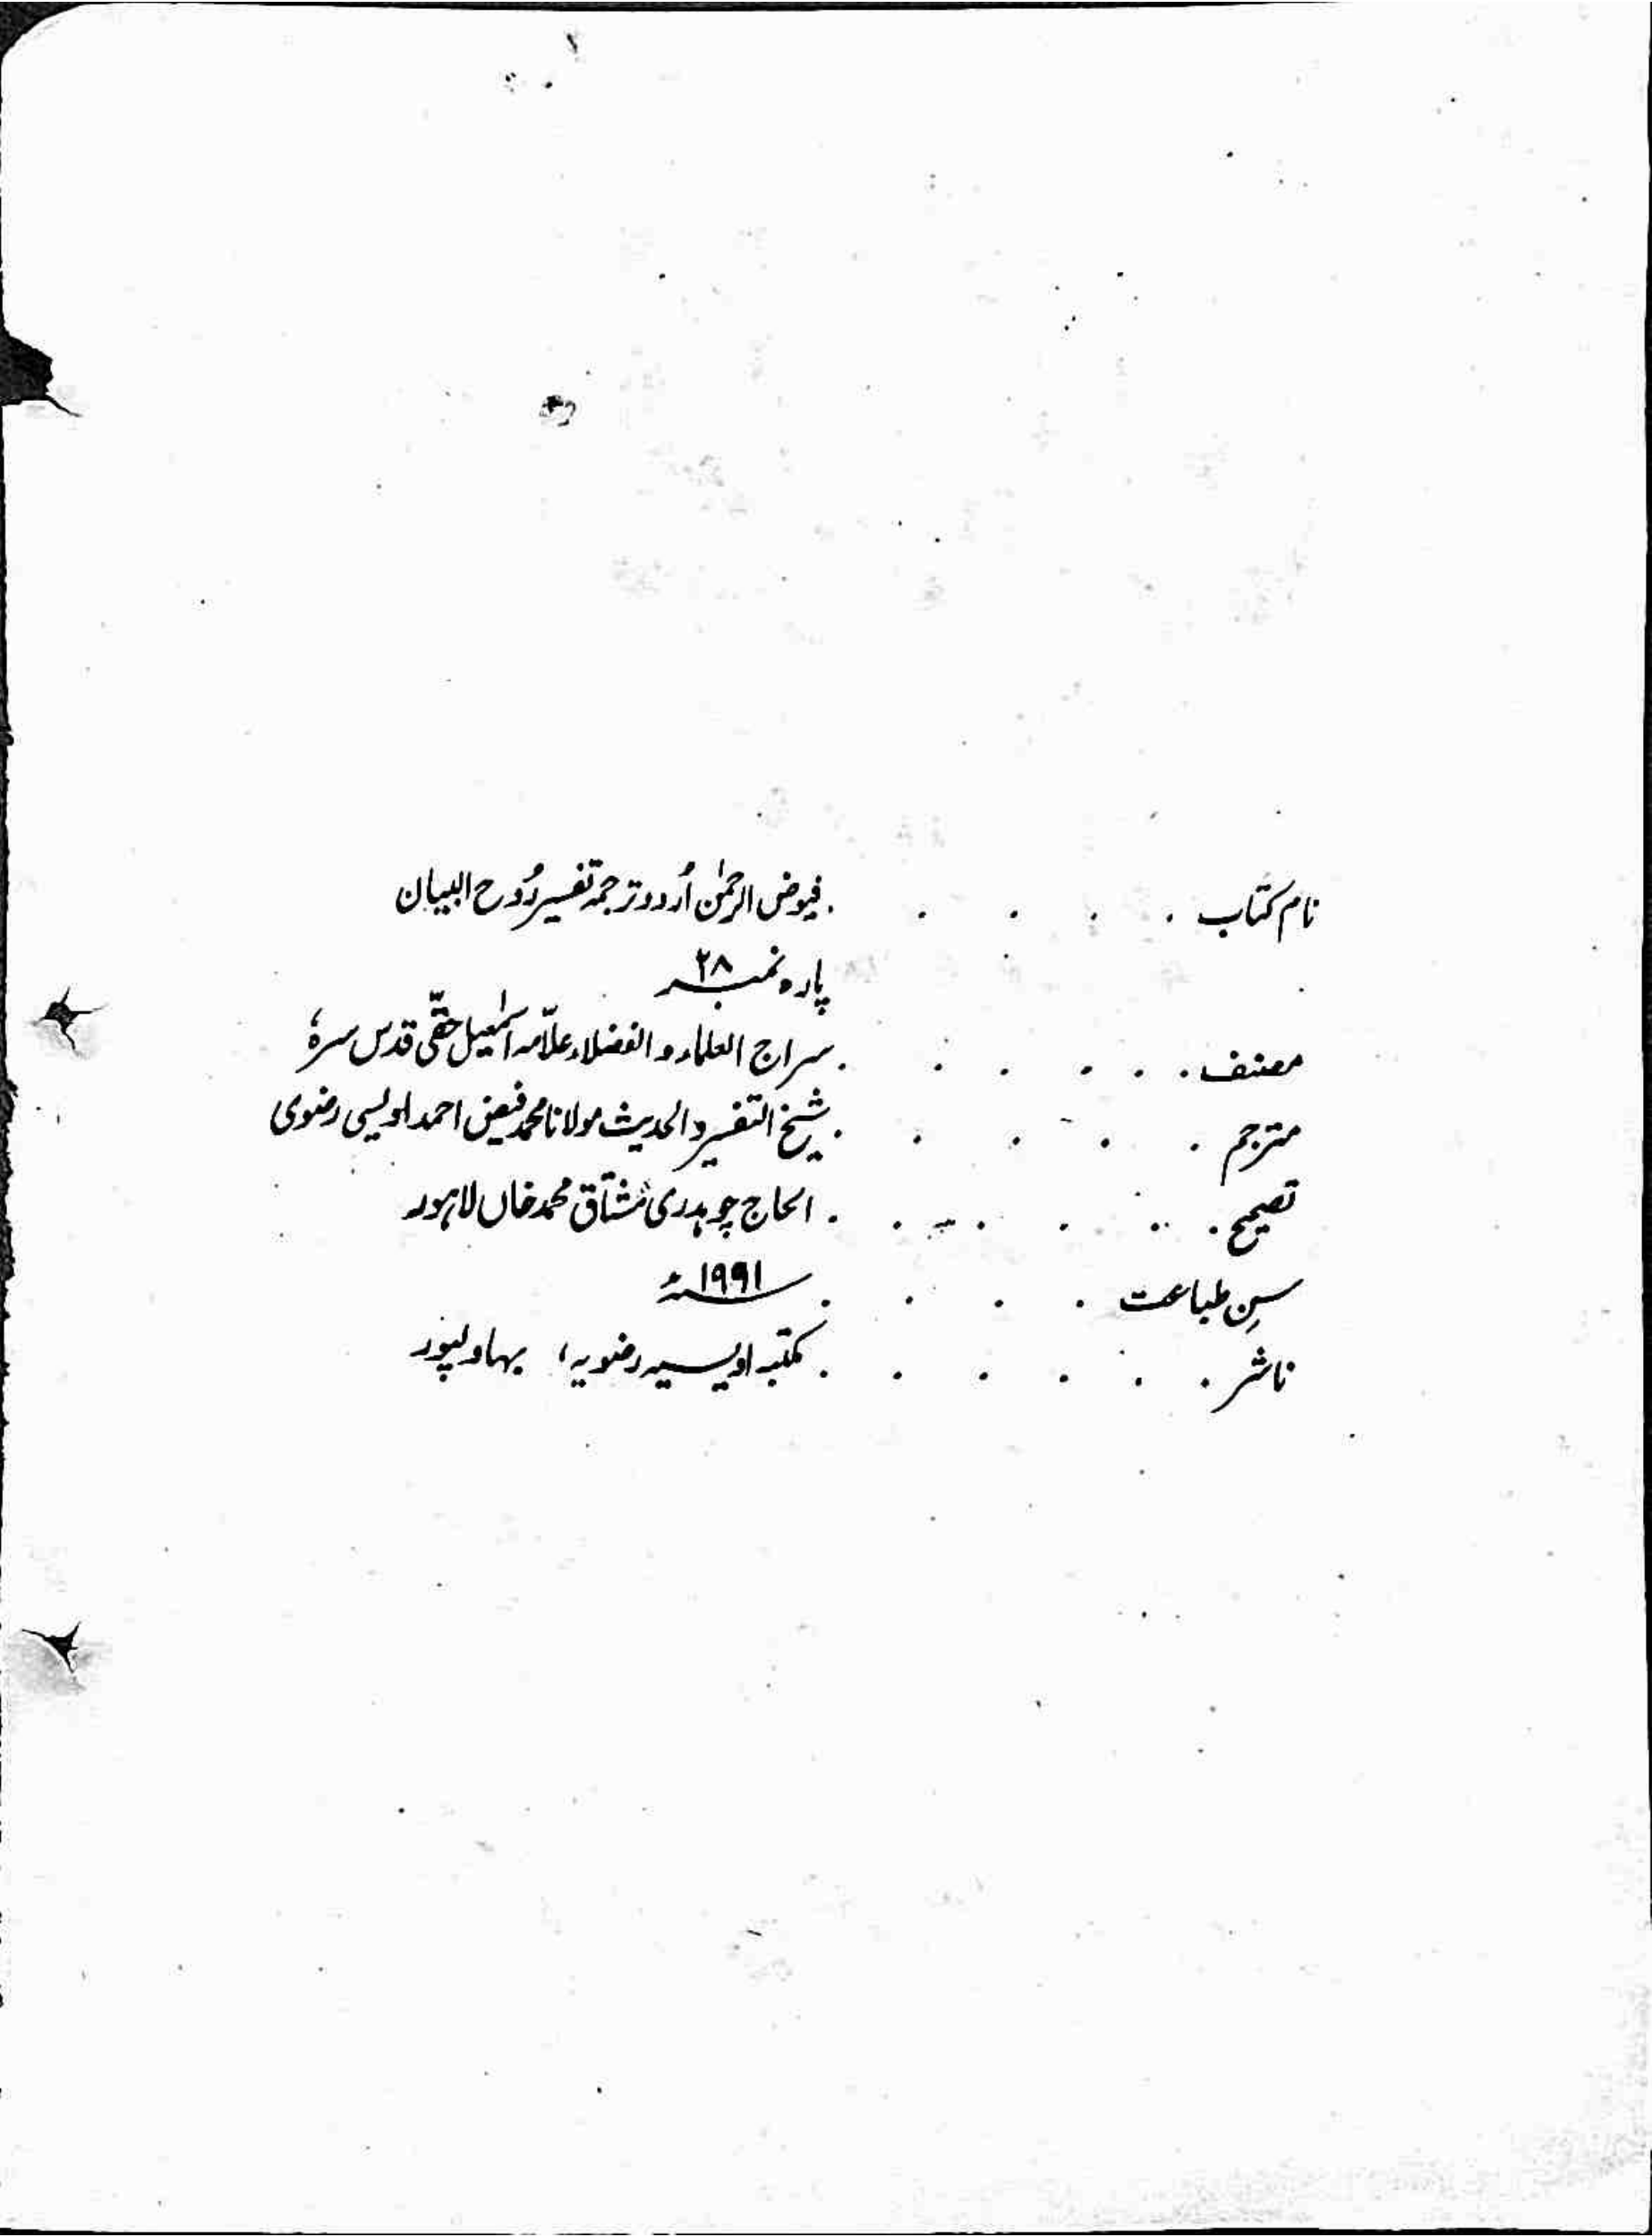 نام کتاب . . . . . فیوض الرحمٰن اُردو ترجمہ تفسیر رُوح البیان
پارہ نمبر ۲۸
مصنف . . . . . . سراج العلماء و الفضلاء علّامہ اسمٰعیل حقّی قدس سرہٗ
مترجم . . . . . شیخ التفسیر و الحدیث مولانا محمد فیض احمد اویسی رضوی
تصحیح . . . . . . الحاج چوہدری مشتاق محمد خاں لاہور
سنِ طباعت . . . . ۱۹۹۱ء
ناشر . . . . . . مکتبہ اویسیہ رضویہ، بہاولپور